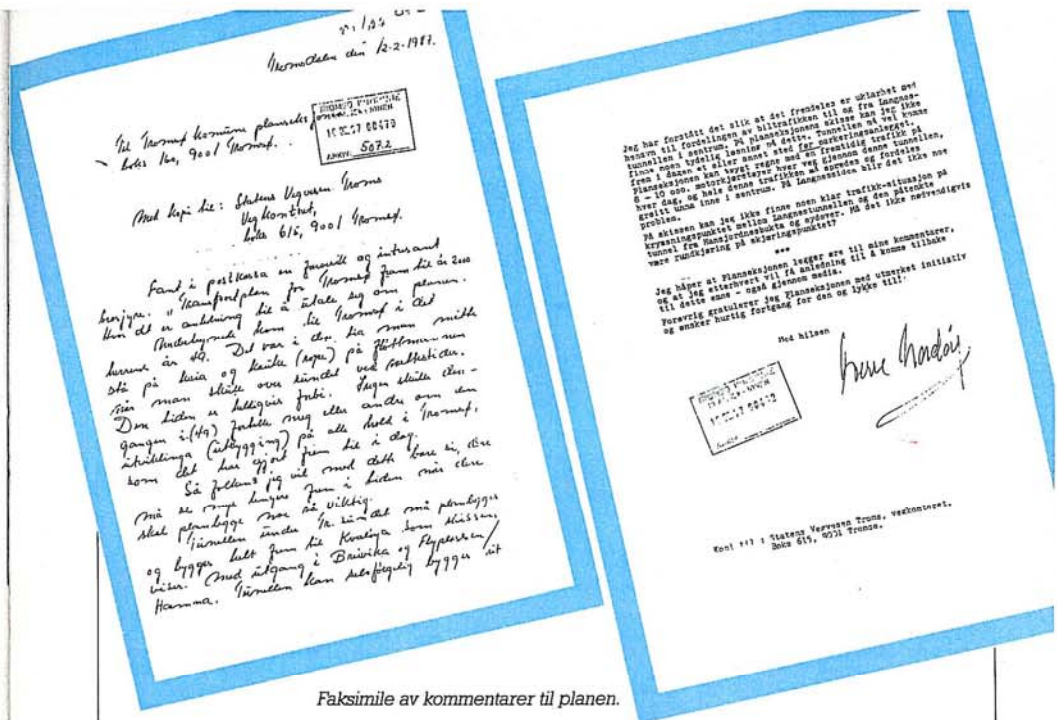 Tromsdalen den 12-2-1987.
Til Tromsø Komune planseksjon,
boks 120, 9001 Tromsø.
ARKIV: 507.2
Med Kopi til: Statens Vegvesen Troms
Veg Kontoret,
boks 615, 9001 Tromsø.
Fant i postkassa en og intresant
brosjyre. "Transportplan for Tromsø fram til år 2000
Hvor det er anledning til å utale seg om planen.
Undertegnede kom til Tromsø i det
herrens år 49. Det var i den tia man måtte
stå på kaia og kauke (rope) på fløttmannen
når man skulle over sundet ved nattestider.
Den tiden er heldigvis forbi. Ingen skulle den-
gangen i (49) fortelle meg eller andre om den
utviklinga (utbygging) på alle hold i Tromsø,
som det har gjort frem til i dag.
Så folkens jeg vil med dette bare si, dere
må se mye lengere frem i tiden når dere
skal planlegge noe så viktig.
Tunellen under Tr. sundet må planlegges
og bygges helt frem til Kvaløya som skissen
viser. Med utgang i Breivika og Flyplassen/
Hamna. Tunellen kan selvfølgelig bygges ut
Jeg har forstått det slik at det fremdeles er uklarhet med
hensyn til fordelingen av biltrafikken til og fra Langnes-
tunnellen i sentrum. På planseksjonens skisse kan jeg ikke
finne noen tydelig løsning på dette. Tunnellen må vel komme
frem i dagen et eller annet sted før parkeringsanlegget.
Planseksjonen kan trygt regne med en fremtidig trafikk på
8 - 10 000. motorkjøretøyer hver veg gjennom denne tunnellen,
hver dag, og hele denne trafikken må spredes og fordeles
greitt unna inne i sentrum. På Langnessiden blir det ikke noe
problem.
På skissen kan jeg ikke finne noen klar trafikk-situasjon på
kryssningspunktet mellom Langnestunnellen og den påtenkte
tunnel fra Mansjordnesbukta og sydover. Må det ikke nødvendigvis
være rundkjøring på skjæringspunktet?
***
Jeg håper at Planseksjonen legger øre til mine kommentarer,
og at jeg etterhvert vil få anledning til å komme tilbake
til dette emne - også gjennom media.
Forøvrig gratulerer jeg Planseksjonen med utmerket initiativ
og ønsker hurtig fortgang for den og lykke til!
Med hilsen
Kopi til : Statens Vegvesen Troms, vegkontoret.
Boks 615, 9001 Tromsø.
Faksimile av kommentarer til planen.